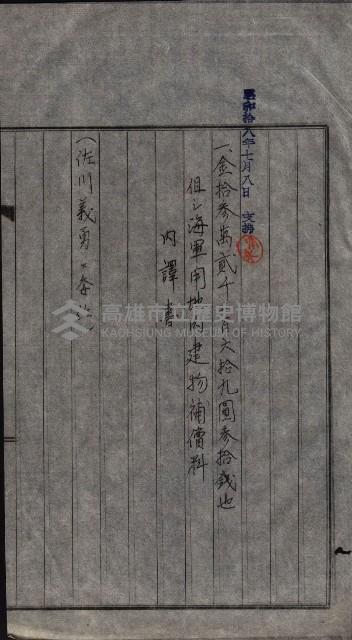 昭和拾八年七月八日
一、金拾参萬貳千 六拾九圓参拾錢也
但シ海軍用地内建物補償料
内譯書
(佐川義勇
高雄市立歷史博物館
KAOHSIUNG MUSEUM OF HISTORY